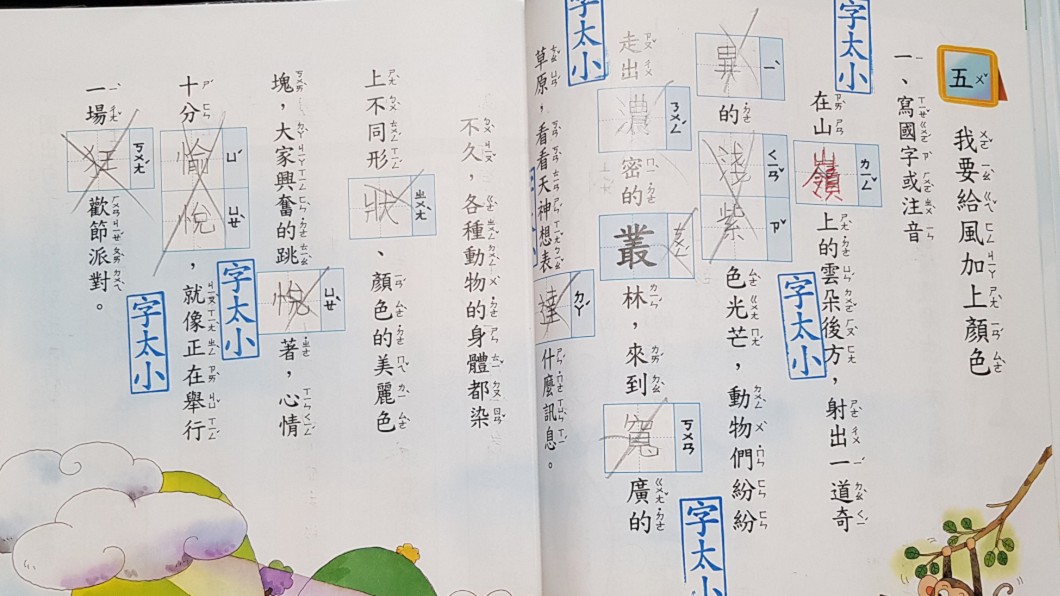 五
我要給風加上顏色
一、寫國字或注音
字太小
在山嶺上的雲朵後方，射出一道奇
字太小
異的淺紫色光芒，動物們紛紛
字太小
走出濃密的叢林，來到寬廣的
字太小
草原，看看天神想表達什麼訊息。
不久，各種動物的身體都染
上不同形狀、顏色的美麗色
塊，大家興奮的跳悅著，心情
字太小
十分愉悅，就像正在舉行
字太小
一場狂歡節派對。